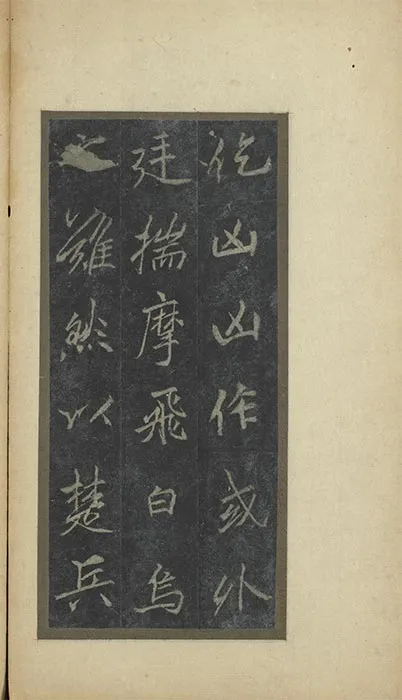 仡凶凶作或外
廷揣摩飛白烏
之雖然以楚兵